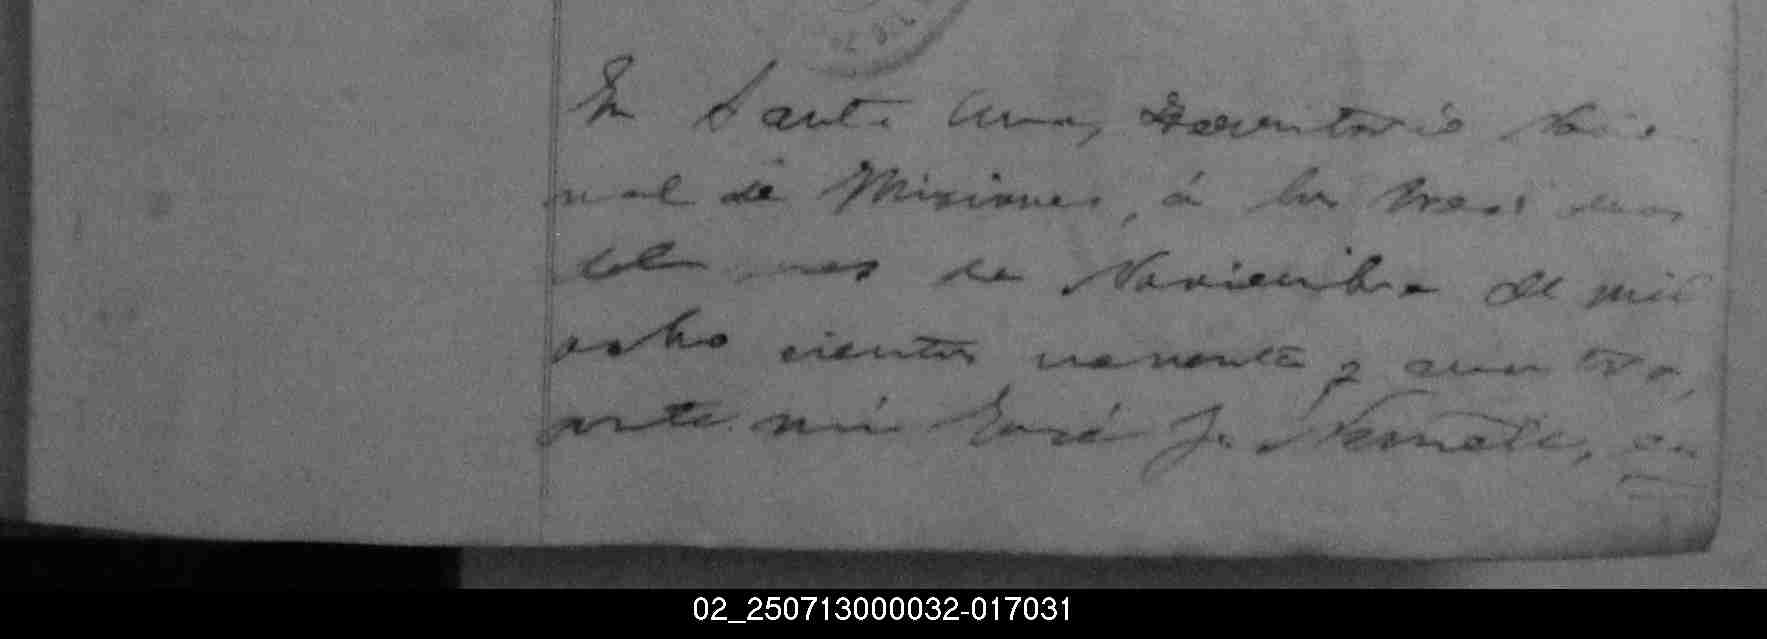 En Santa Ana, Territorio Nacio
nal de Misiones, á los tres dias
del mes de Noviembre de mil
ocho cientos noventa y cuatro,
ante mi José J.
02_250713000032-017031